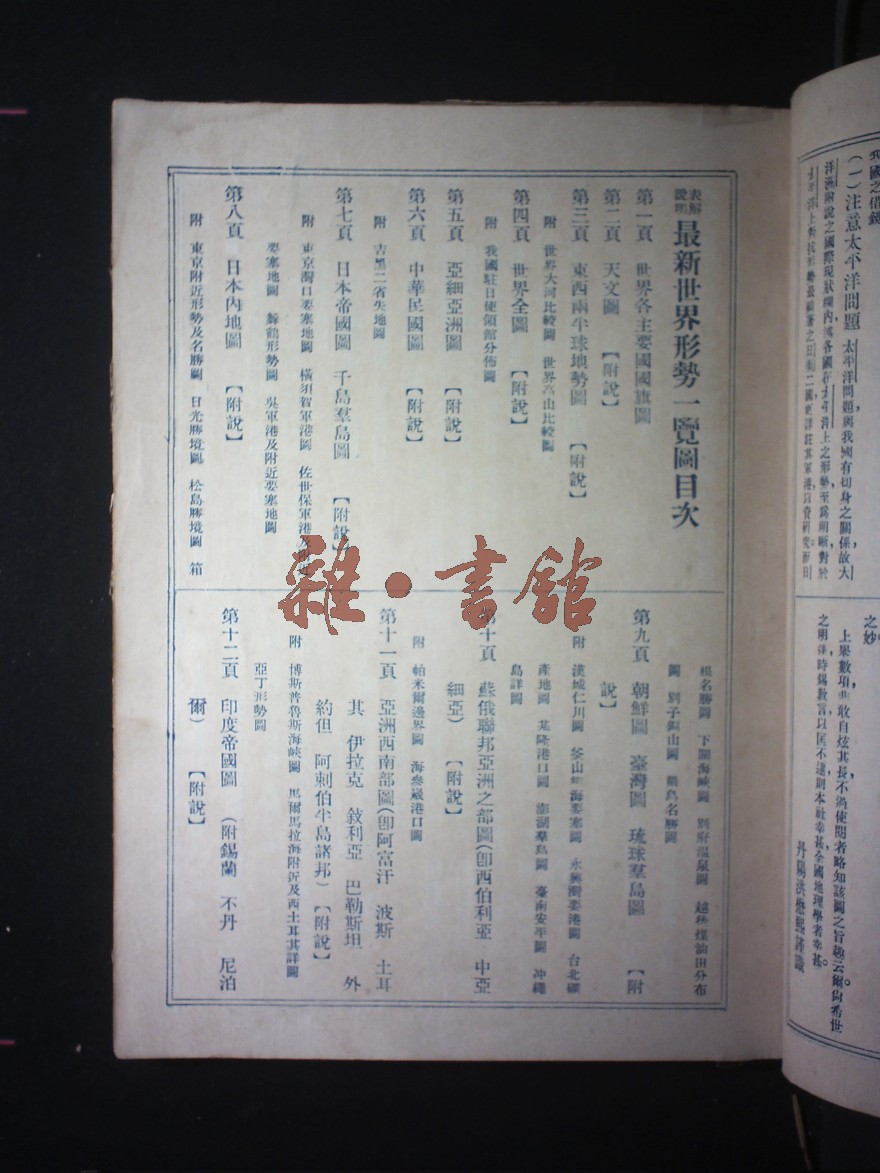 表解
說明
最新世界形勢一覽圖目次
第一頁 世界各主要國國旗圖
第二頁 天文圖 【附說】
第三頁 東西兩半球地勢圖 【附說】
附 世界大河比較圖 世界高山比較圖
第四頁 世界全圖 【附說】
附 我國駐日使領館分佈圖
第五頁 亞細亞洲圖 【附說】
第六頁 中華民國圖 【附說】
附 吉黑二省失地圖
第七頁 日本帝國圖 千島羣島圖 【附說】
附 東京灣口要塞地圖 橫須賀軍港圖 佐世保軍港
要塞地圖 舞鶴形勢圖 吳軍港及附近要塞地圖
第八頁 日本內地圖 【附說】
附 東京附近形勢及名勝圖 日光勝境圖 松島勝境圖 箱
根名勝圖 下關海峽圖 別府溫泉圖 越後煤油田分布
圖 別子銅山圖 嚴島名勝圖
第九頁 朝鮮圖 臺灣圖 琉球羣島圖 【附
說】
附 漢城仁川圖 釜山鎮海要塞圖 永興灣要港圖 台北礦
產地圖 基隆港口圖 澎湖羣島圖 臺南安平圖 冲繩
島詳圖
第十頁 蘇俄聯邦亞洲之部圖(卽西伯利亞 中亞
細亞) 【附說】
附 帕米爾邊界圖 海參崴港口圖
第十一頁 亞洲西南部圖(卽阿富汗 波斯 土耳
其 伊拉克 敍利亞 巴勒斯坦 外
約但 阿剌伯半島諸邦) 【附說】
附 博斯普魯斯海峽圖 馬爾馬拉海附近及西土耳其詳圖
亞丁形勢圖
第十二頁 印度帝國圖 (附錫蘭 不丹 尼泊
爾) 【附說】
雜·書館
我國之借鏡
(一)注意太平洋問題 太平洋問題與我國有切身之關係故大
洋洲附說之國際現狀欄內將各國在太平洋上之形勢至爲明晰對於
太平洋上對抗形勢最顯著之日美二國更詳註其軍港以資研究而日
之妙
上舉數項非敢自炫其長不過使閱者略知該圖之旨趣云爾尚希世
之明達時錫敎言以匡不逮則本社幸甚全國地理學者幸甚。
丹陽洪懋熙謹識